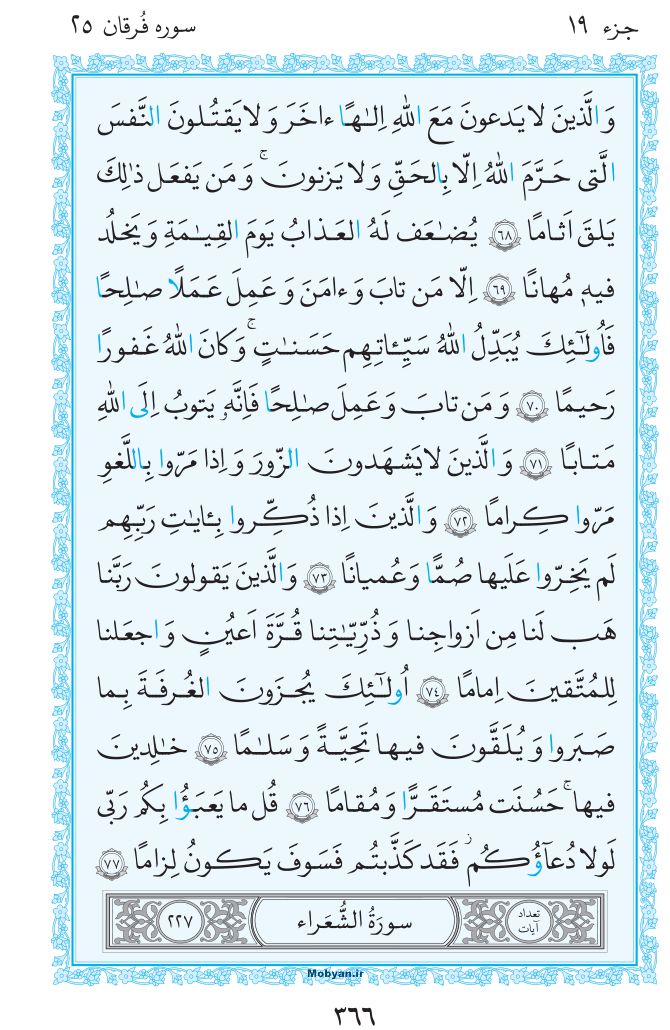 جزء ۱۹
سوره فُرقان ۲۵
وَالَّذينَ لا يَدعونَ مَعَ اللهِ اِلـٰهًا ءاخَرَ وَ لا يَقتُلونَ النَّفسَ
الَّتى حَرَّمَ اللهُ اِلّا بِالحَقِّ وَ لا يَزنونَ ۚ وَ مَن يَفعَل ذٰلِكَ
يَلقَ اَثامًا ﴿۶۸﴾ يُضـٰعَف لَهُ العَذابُ يَومَ القِيـٰمَةِ وَ يَخلُد
فيهٖ مُهانًا ﴿۶۹﴾ اِلّا مَن تابَ وَ ءامَنَ وَ عَمِلَ عَمَلًا صـٰلِحًا
فَاُولـٰٓئِكَ يُبَدِّلُ اللهُ سَيِّـٔاتِهِم حَسَنـٰتٍ ۚ وَ كانَ اللهُ غَفورًا
رَحيمًا ﴿۷۰﴾ وَ مَن تابَ وَ عَمِلَ صـٰلِحًا فَاِنَّهٗ يَتوبُ اِلَى اللهِ
مَتابًا ﴿۷۱﴾ وَ الَّذينَ لا يَشهَدونَ الزّورَ وَ اِذا مَرّوا بِاللَّغوِ
مَرّوا كِرامًا ﴿۷۲﴾ وَ الَّذينَ اِذا ذُكِّروا بِـٔايـٰتِ رَبِّهِم
لَم يَخِرّوا عَلَيها صُمًّا وَ عُميانًا ﴿۷۳﴾ وَ الَّذينَ يَقولونَ رَبَّنا
هَب لَنا مِن اَزواجِنا وَ ذُرِّيّـٰتِنا قُرَّةَ اَعيُنٍ وَ اجعَلنا
لِلمُتَّقينَ اِمامًا ﴿۷۴﴾ اُولـٰٓئِكَ يُجزَونَ الغُرفَةَ بِما
صَبَروا وَ يُلَقَّونَ فيها تَحِيَّةً وَ سَلـٰمًا ﴿۷۵﴾ خـٰلِدينَ
فيها ۚ حَسُنَت مُستَقَرًّا وَ مُقامًا ﴿۷۶﴾ قُل ما يَعبَؤُا بِكُم رَبّى
لَولا دُعآؤُكُم ۖ فَقَد كَذَّبتُم فَسَوفَ يَكونُ لِزامًا ﴿۷۷﴾
تعداد آیات
سورَةُ الشُّعَراء
۲۲۷
Mobyan.ir
۳۶۶